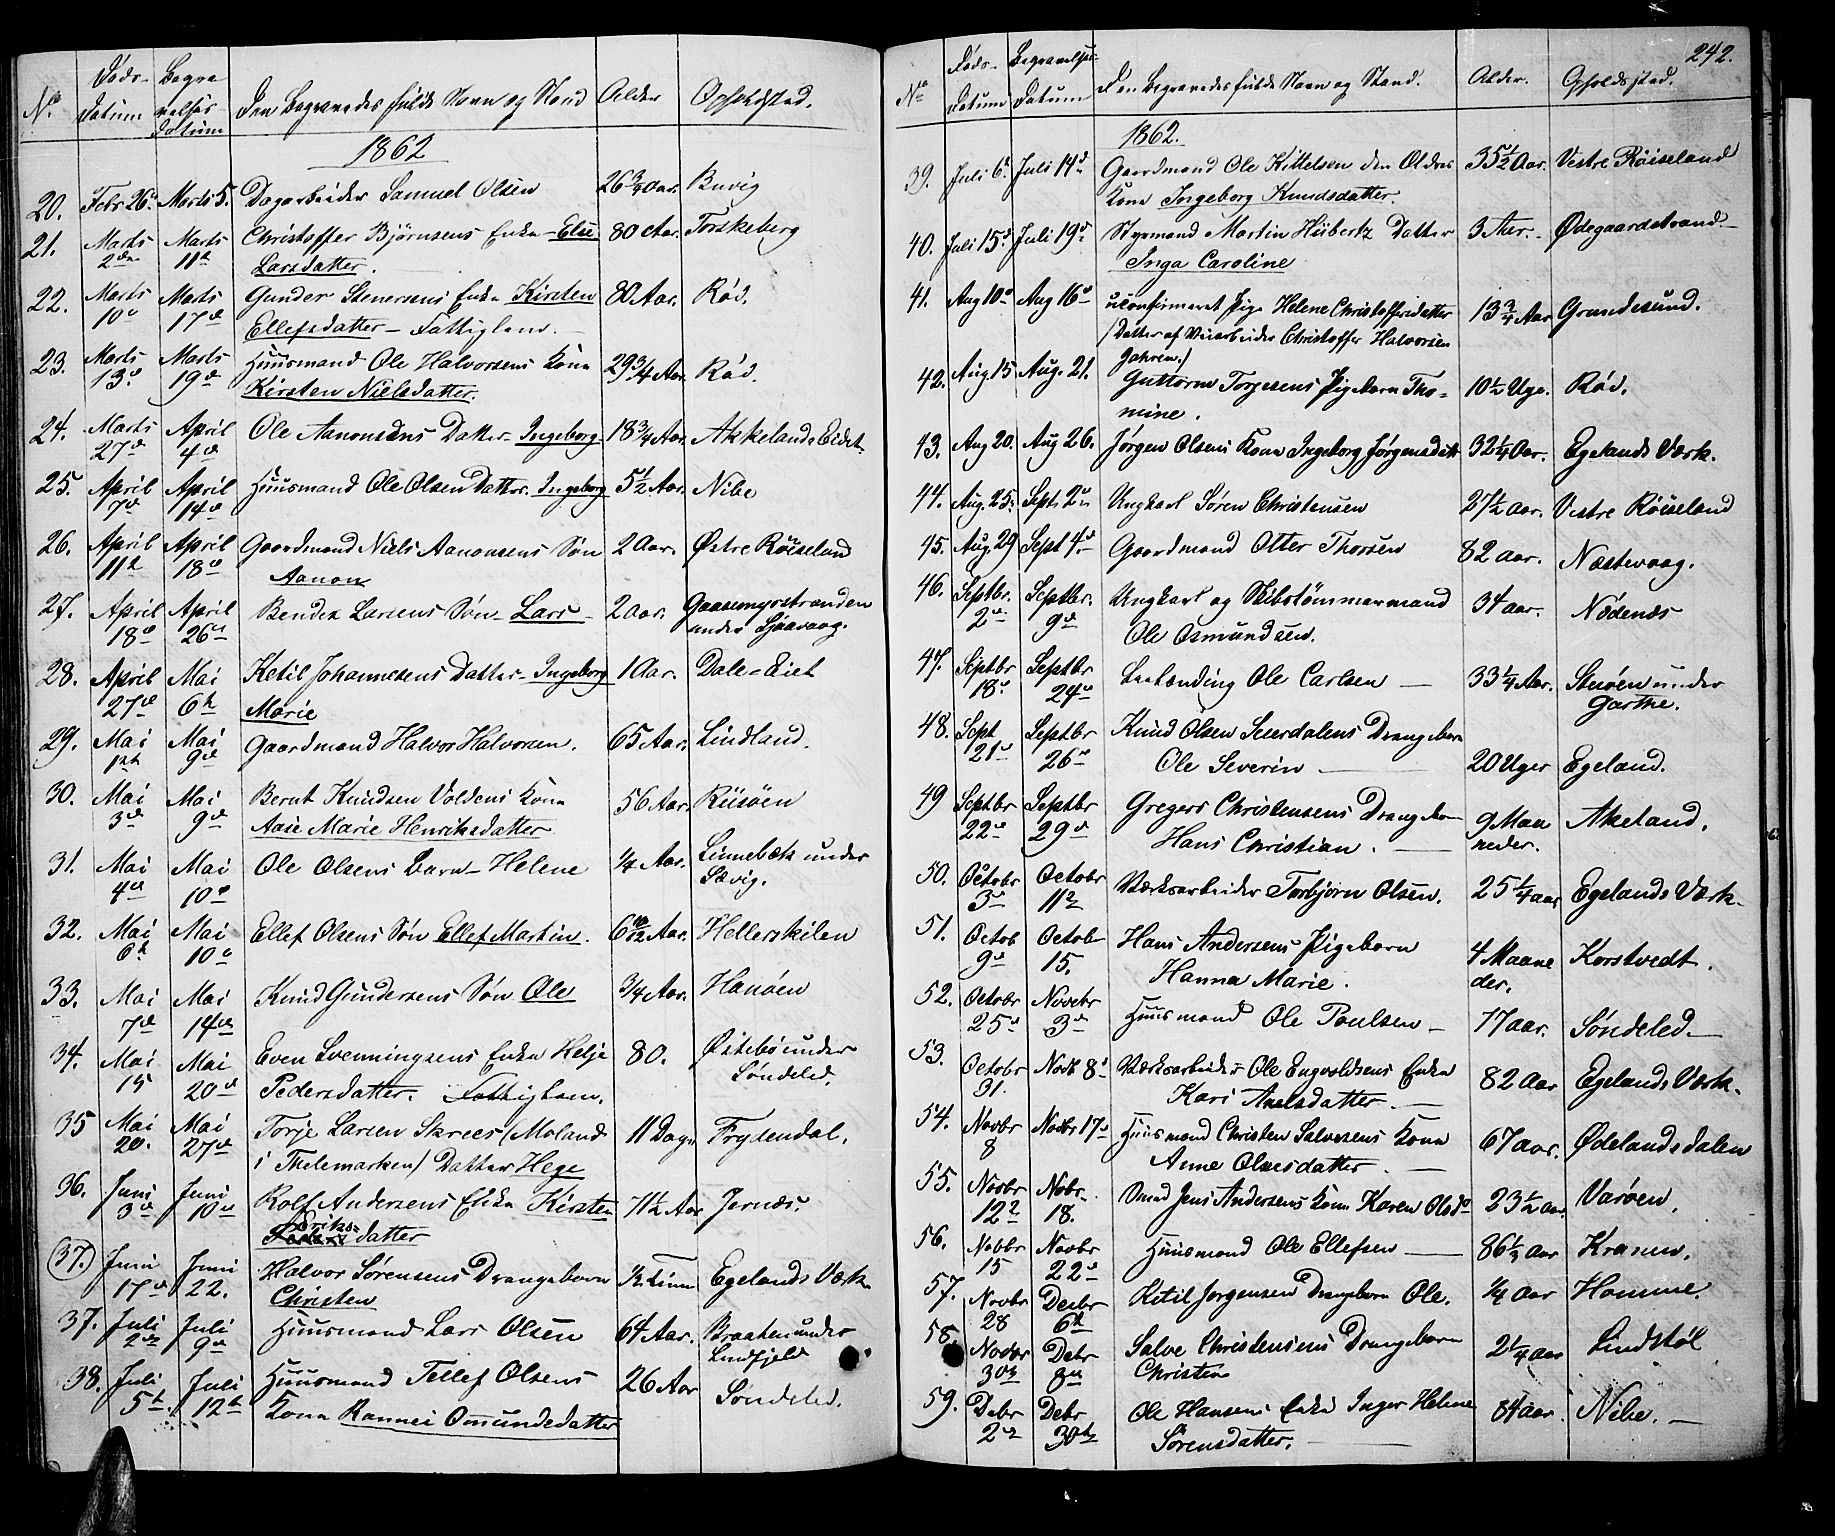 No.
Døds-
Datum
Begra-
velses
Datum
Den Begravedes fulde Navn og Stand
Alder
Opholdsted.
1862
20. Febr 26. Marts 5. Dagarbeider Samuel Olsen 26 3/4 Aar. Buvig
21. Marts Marts Christoffer Bjørnsens Enke Else 80 Aar. Torskeberg
2den 11te Larsdatter.
22. Marts Marts Gunder Stenersens Enke Kirsten 80 Aar. Rød.
10de 17de Ellefsdatter - Fattiglem.
23. Marts Marts Huusmand Ole Halvorsens Kone 29 3/4 Aar. Rød.
13de 19de Kirsten Nielsdatter.
24. Marts April Ole Aanonsens Datter Ingeborg 18 3/4 Aar. Akkelands Eidet
27de 4de
25. April April Huusmand Ole Olsen Datter. Ingeborg 5 1/2 Aar. Nibe
7de 14de
26. April April Gaardmand Niels Aanonsens Søn 2 Aar. Østre Röiseland
11te 18de Aanon
27. April April Bendix Larsens Søn - Lars 2 Aar. Gaasmyrstranden
18de 26de under Sjaavaag.
28. April Mai Ketil Johannesens Datter - Ingeborg 1 Aar. Dale-Eiet
27de 6te Marie
29. Mai Mai Gaardmand Halvor Halvorsen. 65 Aar. Lindland.
1ste 9de
30. Mai Mai Bernt Knudsen Voldens Kone 56 Aar. Riisöen
3de 9de Aase Marie Henriksdatter
31. Mai Mai Ole Olsens Barn - Helene 1/4 Aar. Linnebæk under
4de 10de Sævig.
32. Mai Mai Ellef Olsens Søn Ellef Martin. 6 10/12 Aar. Hellerskilen
6te 10de
33. Mai Mai Knud Gundersens Søn Ole 3/4 Aar. Hanöen
7de 14de
34. Mai Mai Even Svenningsens Enke Helje 80. Østebö under
15 20de Pedersdatter. Fattiglem. Søndeled.
35 Mai Mai Torje Larsen Skrees (Moland 11 Dage Frydendal.
20. 27de i Thelemarken) Datter Hege
36. Juni Juni Rolf Andersens Enke Kirsten 71 1/2 Aar Jernæs.
3de 10de Eriksdatter
(37.) Juni Juni Halvor Sørensens Drengebarn 1/2 Time Egelands Værk
17de 22. Christen
37. Juli Juli Huusmand Lars Olsen 64 Aar. Braaten under
2den 9de Lindfjeld
38. Juli Juli Huusmand Tellef Olsens 26 Aar Søndeled.
5te 12te Kone Rannei Omundsdatter
242.
No.
Døds-
Datum
Begravelses-
Datum
Den Begravedes fulde Navn og Stand.
Alder.
Opholdsted.
1862.
39. Juli 6te Juli 14de Gaardmand Ole Kittelsen den Oldres 35 1/2 Aar. Vestre Röiseland
Kone Ingeborg Knudsdatter.
40. Juli 15de Juli 19de Styrmand Martin Hübertz Datter 3 Aar. Ødegaardstrand
Inga Caroline
41. Aug 10de Aug 16de uconfirmeret Pige Helene Christoffersdatter 13 3/4 Aar Grundesund.
(Datter af Veiarbeider Christoffer Halvorsen
Jahren.)
42. Aug. 15 Aug. 21. Guttorm Torjesens Pigebarn Tho- 10 1/2 Uge. Rød.
mine.
43. Aug 20. Aug 26. Jørgen Olsens Kone Ingeborg Jørgensdatt 32 1/4 Aar. Egelands Værk.
44. Aug. 25. Sept. 2den Ungkarl Søren Christensen 27 1/2 Aar. Vestre Röiseland
45. Aug. 29 Sept 4de Gaardmand Otter Thorsen 82 Aar. Næstevaag.
46. Septbr. Septbr. Ungkarl og Skibstømmermand 34 Aar. Nödenæs
2den 9de Ole Osmundsen.
47. Septbr Septbr Ole Carlsen 33 1/4 Aar. Stuöen under
18de 24de Garthe.
48. Sept Septbr Knud Olsen Seuerdalens Drengebarn
21de 26de Ole Severin 20 Uger Egeland.
49 Septbr Septbr Gregers Christensens Drengeba 9 Maa Akeland.
22de 29de Hans Christian. neder.
50. Octobr Octobr Værksarbeider Torbjørn Olsen. 25 1/4 Aar Egelands Værk.
5te 11te
51. Octob Octob Hans Andersens Pigebarn 4 Maane Korstvedt.
9de 15. Hanna Marie. der.
52. Octobr Novebr Huusmand Ole Poulsen 77 Aar. Søndeled.
25de 3de
53. Octobr Novb 8de Værksarbeider Ole Engvoldsens Enke 82 Aar Egelands Værk.
31. Kari Axelsdatter
54. Novbr Novbr 17de Huusmand Christen Salvesens Kone 67 Aar. Ødelandsdalen
8 Anne Olsesdatter
55. Novbr Nobr. Smed Jens Andersens Kone Karen Olsd 23 1/2 Aar. Varöen.
12te 18.
56. Nobbr Novbr Huusmand Ole Ellefsen 86 1/2 Aar Kranen.
15 22de
57. Novbr Decbr Ketil Jorgensens Drengebarn Ole. 1/4 Aar Homme.
28 6te
58. Novbr Debr Salve Christensens Drengebarn 2 1/4 Aar Lindstøl
30te 8de Christen
59. Debr Debr Ole Hansens Enke Inger Helene 84 Aar. Nibe.
2den 30te Sörensdatter.